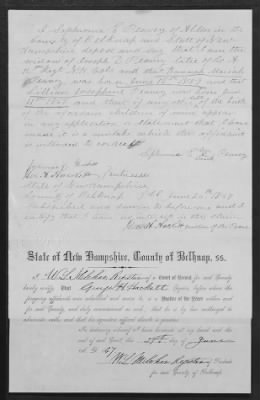 I Sephrona E Peavey of Alton in the
County of Belknap and State of New
Hampshire depose and say that I am the
widow of Joseph D Peavey late of Co. A
12th Regt N H Vols and that Hannah Mariah
Peavey was born June 18th 1857 and
Lillian Josephine Peavey was born Jan
11th 1861 and that if any other of the birth
of the aforesaid children of mine appear
in any application or statement that I have
made it is a mistake which this affidavit
is intended to correct
Sephrona E Peavey
George H
State of New Hampshire
County of Belknap
Subscribed and sworn to before me and I
certify that I have no interest in this claim
State of New Hampshire, County of Belknap, ss.
I, Register of a Court of Record for said County
hereby certify that George H Hackett Esquire before whom the
foregoing affidavits was admitted and sworn to is a Justice of the Peace within and for
said County, and duly commissioned as such; that he is by law authorized to
administer oaths; and that his signature affixed thereto is genuine.
In testimony whereof I have hereunto set my hand and the
seal of said Court, this day of June
A. D. 1867
Register of Probate
for said County of Belknap.